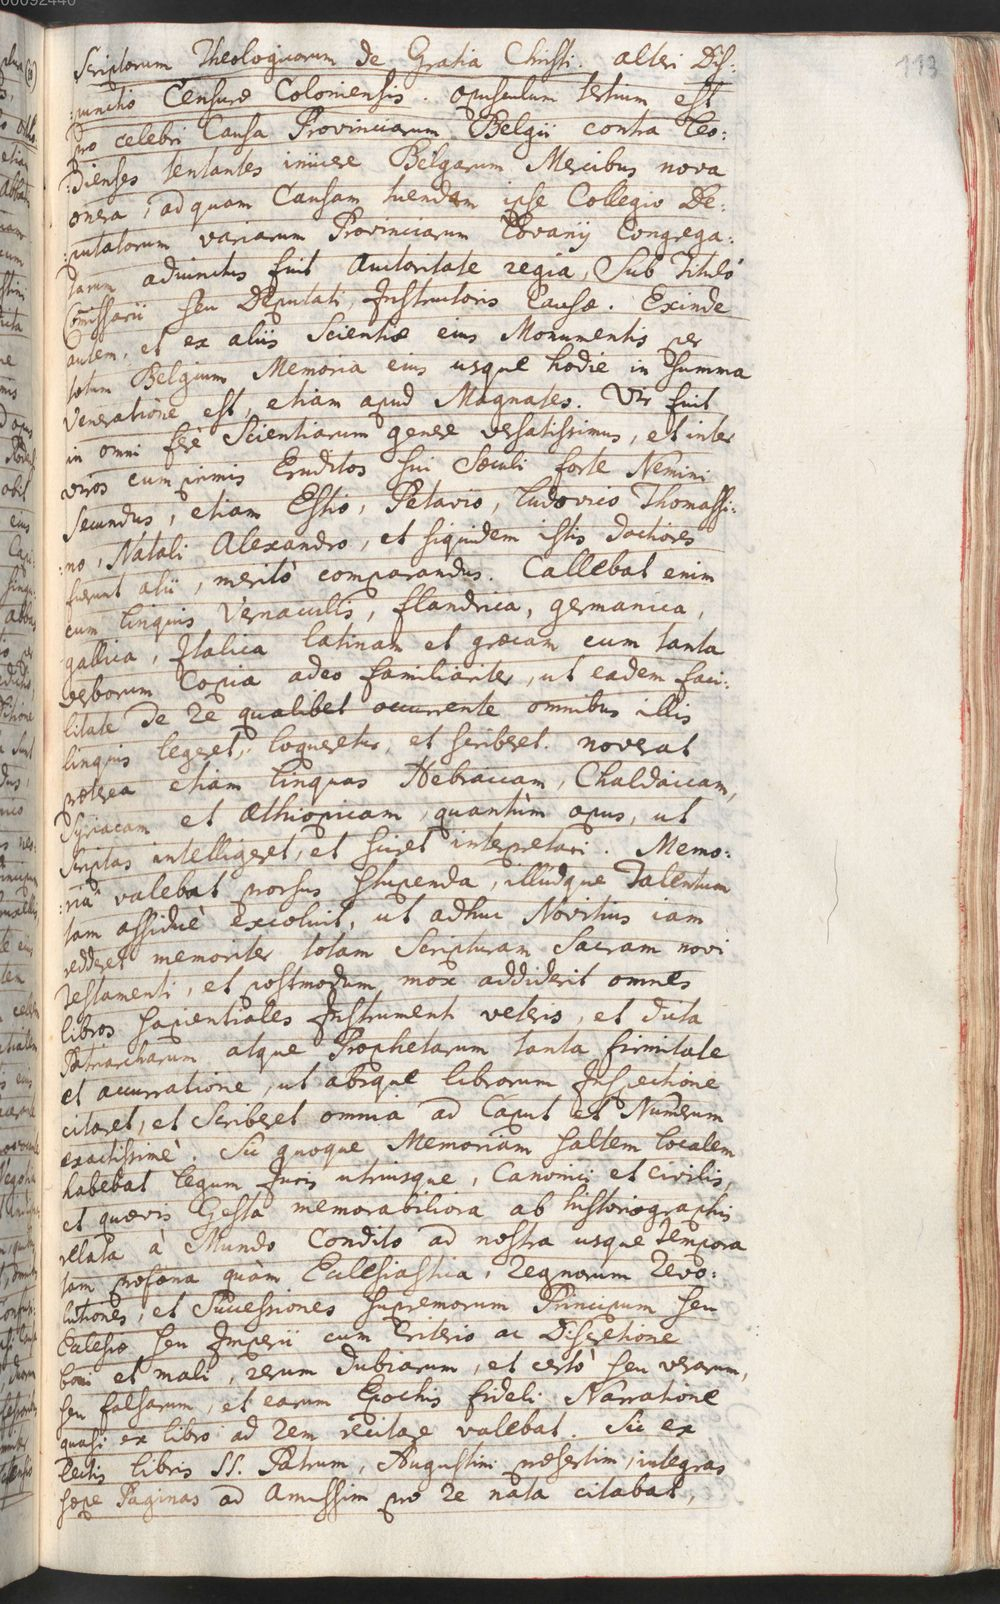 00092440
113
Scriptorum Theologicorum de Gratia Christi. alteri Dis:
:punctio Censuræ Coloniensis. opusculum tertium est
pro celebri Causa Provinciarum Belgii contra Leo:
:dienses tentantes iniicere Belgarum Mercibus nova
onera, ad quam Causam tuendam ipse Collegio De:
:putatorum variarum Provinciarum Lovanij Congrega:
tarum adiunctus fuit Auctoritate regia, Sub Titulô
Comissarii seu Deputati, Instructoris Causæ. Exinde
autem, et ex aliis Scientiæ eius Monumentis per
totum Belgium Memoria eius usque hodie in summa
Veneratione est, etiam apud Magnates. Vir fuit
in omni ferè Scientiarum genere versatissimus, et inter
viros cum primis Eruditos sui Sæculi forte Nemini
secundus, etiam Estio, Petavio, Ludovico Thomassi:
:no, Natali Alexandro, et siquidem istis doctiores
fuerunt alii, meritò comparandus. Callebat enim
cum linguis Vernaculis, flandrica, germanica,
gallica, Italica latinam et græcam cum tanta
verborum Copia adeo familiariter, ut eadem faci:
litate de re qualibet occurrente omnibus illis
linguis legeret, loqueretur, et scriberet. noverat
præterea etiam linguas Hebraicam, Chaldaicam,
Syriacam et Æthiopicam, quantùm opus, ut
scriptas intelligeret, et sciret interpretari. Memo:
:riâ valebat prorsus stupenda, illudque Talentum
tam assiduè excoluit, ut adhuc Novitius iam
redderet memoriter totam Scripturam Sacram novi
Testamenti, et postmodum mox addiderit omnes
libros sapientiales Instrumenti veteris, et dicta
Patriarcharum atque Prophetarum tanta firmitate
et accurratione, ut absque librorum Inspectione
citaret, et Scriberet omnia ad Caput et Numerum
exactissimè. Sic quoque Memoriam saltem localem
habebat legum Juris utriusque, Canonici et civilis,
et quævis Gesta memorabiliora ab historiographis
relata à Mundo Condito ad nostra usque Tempora
tam profana quàm Ecclesiastica, regnorum revo:
lutiones, et Successiones supremorum Principum seu
Ecclesiæ seu Imperii cum Criterio ac Discretione
boni et mali, rerum dubiarum, et certò seu verarum,
seu falsarum, et earum Epochis fideli Narratione
quasi ex libro ad rem recitare valebat. Sic ex
lectis libris SS. Patrum, Augustini præsertim, integras
sæpe Paginas ad Amussim pro re nata citabat,